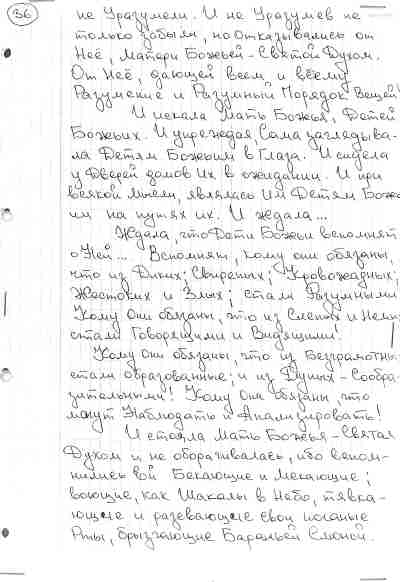 36
не Уразумели. И не Уразумев не
только забыли, но Отказывались от
Неё, Матери Божьей - Святой Духом.
От Неё, дающей всем и всему
Разумение и Разумный Порядок Вещей!
И искала Мать Божья, Детей
Божьих. И упреждая, Сама заглядыва-
ла Детям Божьим в Глаза. И сидела
у Дверей домов Их в ожидании. И при
всякой Мысли, являлась Им Детям Божь
им на путях их. И ждала...
Ждала, что Дети Божьи вспомнят
о Ней... Вспомнят, кому они обязаны,
что из Диких; Свирепых; Кровожадных;
Жестоких и Злых; стали Разумными
Кому Они обязаны, что из Слепых и Немых
стали Говорящими и Видящими!
Кому Они обязаны, что из Безграмотны
стали образованные; и из Дурных - Сообра-
зительными! Кому Они обязаны, что
могут Наблюдать и Анализировать!
И стояла Мать Божья - Святая
Духом и не оборачивалась, ибо вспом-
нились ей Бекающие и Мекающие;
воющие, как Шакалы в Небо, тявка-
ющие и разевающие свои поганые
Рты, брызгающие Бараньей Слюной.